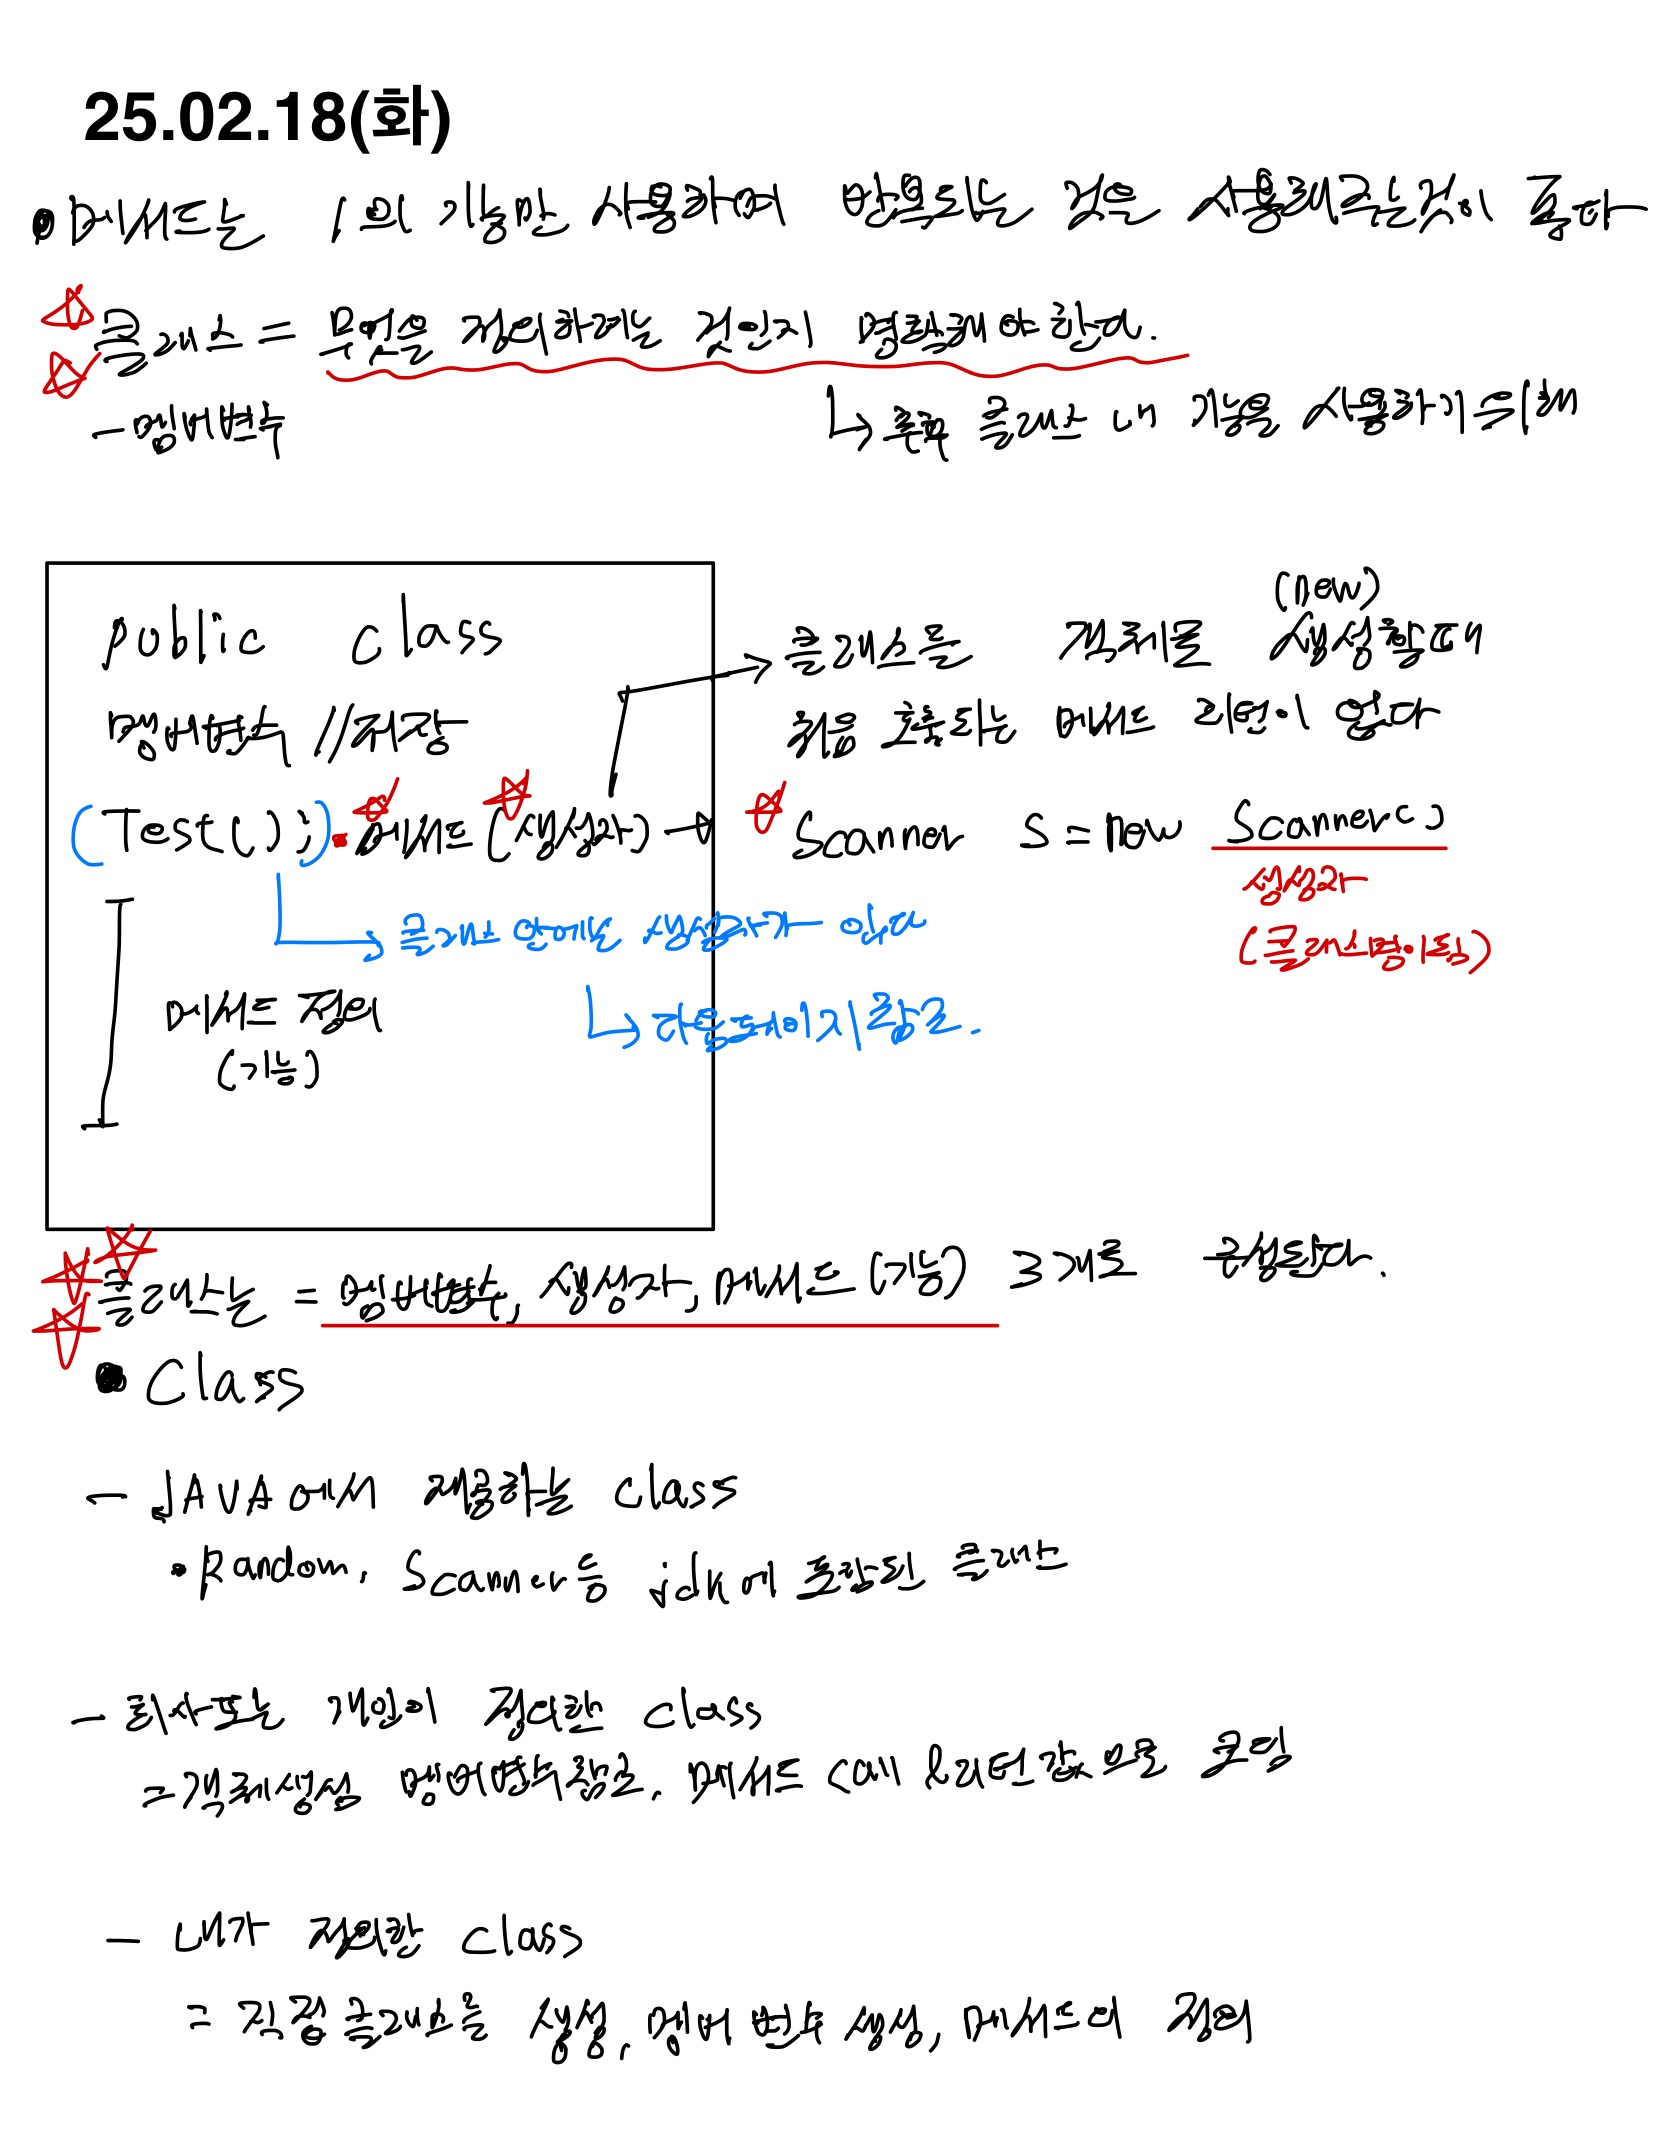 25.02.18(화)
메서드는 1의 기능만 사용하며 반복되는 것은 사용해주는것이 좋다
클래스 = 무엇을 정의하려는 것인지 명확해야한다.
- 멤버변수
↳ 추후 클래스 내 기능을 사용하기위해
public class
멤버변수 //저장
(Test();) 메서드 (생성자) →
↳ 클래스 안에는 생성자가 있다
↳ 다음페이지 참고.
메서드 정의
(기능)
(new)
클래스를 객체를 생성할때
처음 호출되는 메서드 리턴이 없다
Scanner s = new Scanner()
생성자
(클래스명이동)
클래스는 = 멤버변수, 생성자, 메서드 (기능) 3개로 구성된다.
• Class
- JAVA에서 제공하는 class
• Random, Scanner등 jdk에 포함된 클래스
- 회사또는 개인이 정의한 class
= 객체생성 멤버변수참고. 메서드 call 리턴값으로 코딩
- 내가 정의한 class
= 직접 클래스를 생성, 멤버 변수 생성, 메서드의 정의